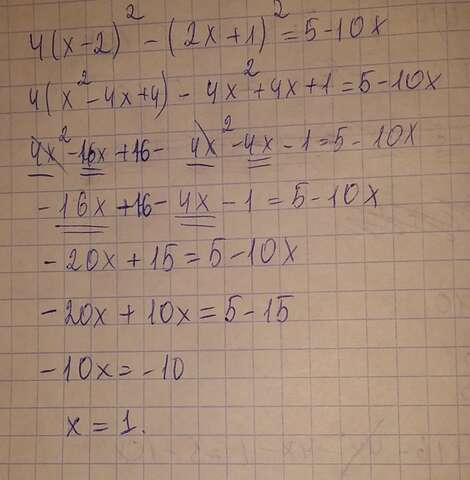 4(x-2)² - (2x+1)² = 5-10x
4(x²-4x+4) - 4x²+4x+1 = 5-10x
4x²-16x+16- 4x²-4x-1 = 5-10x
-16x+16-4x-1 = 5-10x
-20x+15 = 5-10x
-20x+10x = 5-15
-10x = -10
x = 1.